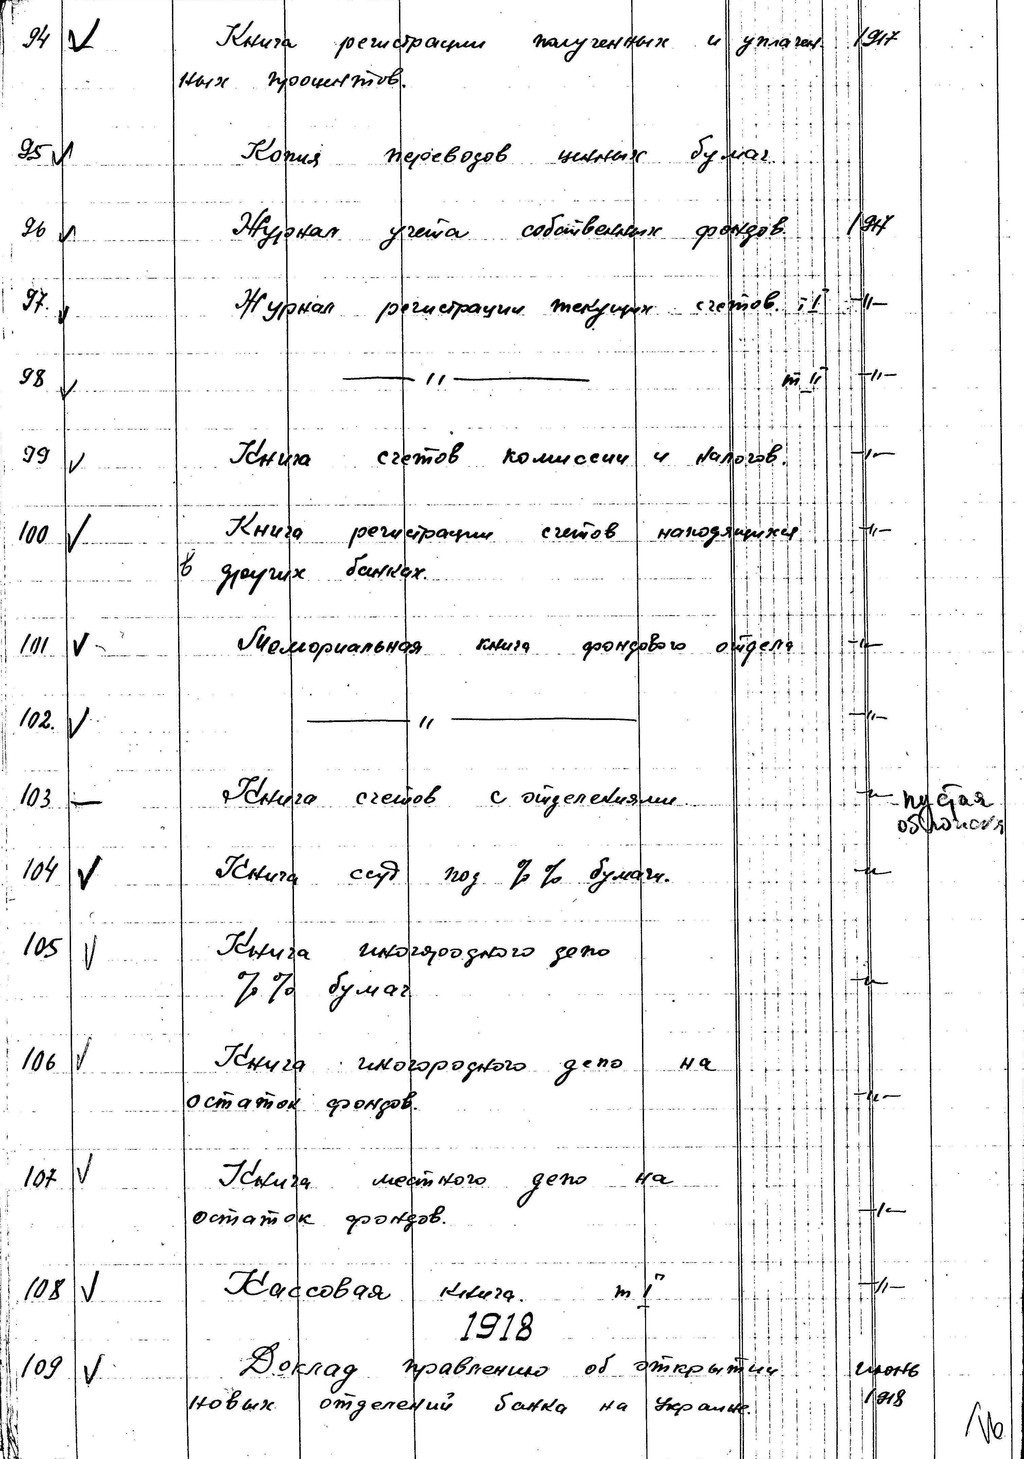 94 V Книга регистрации полученных и уплачен- 1917
ных процентов.
95 V Копия переводов ценных бумаг
96 V Журнал учета собственных фондов 1917
97. V Журнал регистрации текущих счетов. т I -"-
98 V —— " —— т II -"-
99 V Книга счетов комиссии и налогов. -"-
100 V Книга регистрации счетов находящихся -"-
в других банках.
101 V Мемориальная книга фондового отдела -"-
102. V —— " —— -"-
103 — Книга счетов с отделениями -"- пустая
обложка
104 V Книга ссуд под %% бумаги. -"-
105 V Книга иногороднего депо
%% бумаг -"-
106 V Книга иногороднего депо на
остаток фондов. -"-
107 V Книга местного депо на
остаток фондов. -"-
108 V Кассовая книга. т I -"-
1918
109 V Доклад правлению об открытии июнь
новых отделений банка на Украине. 1918